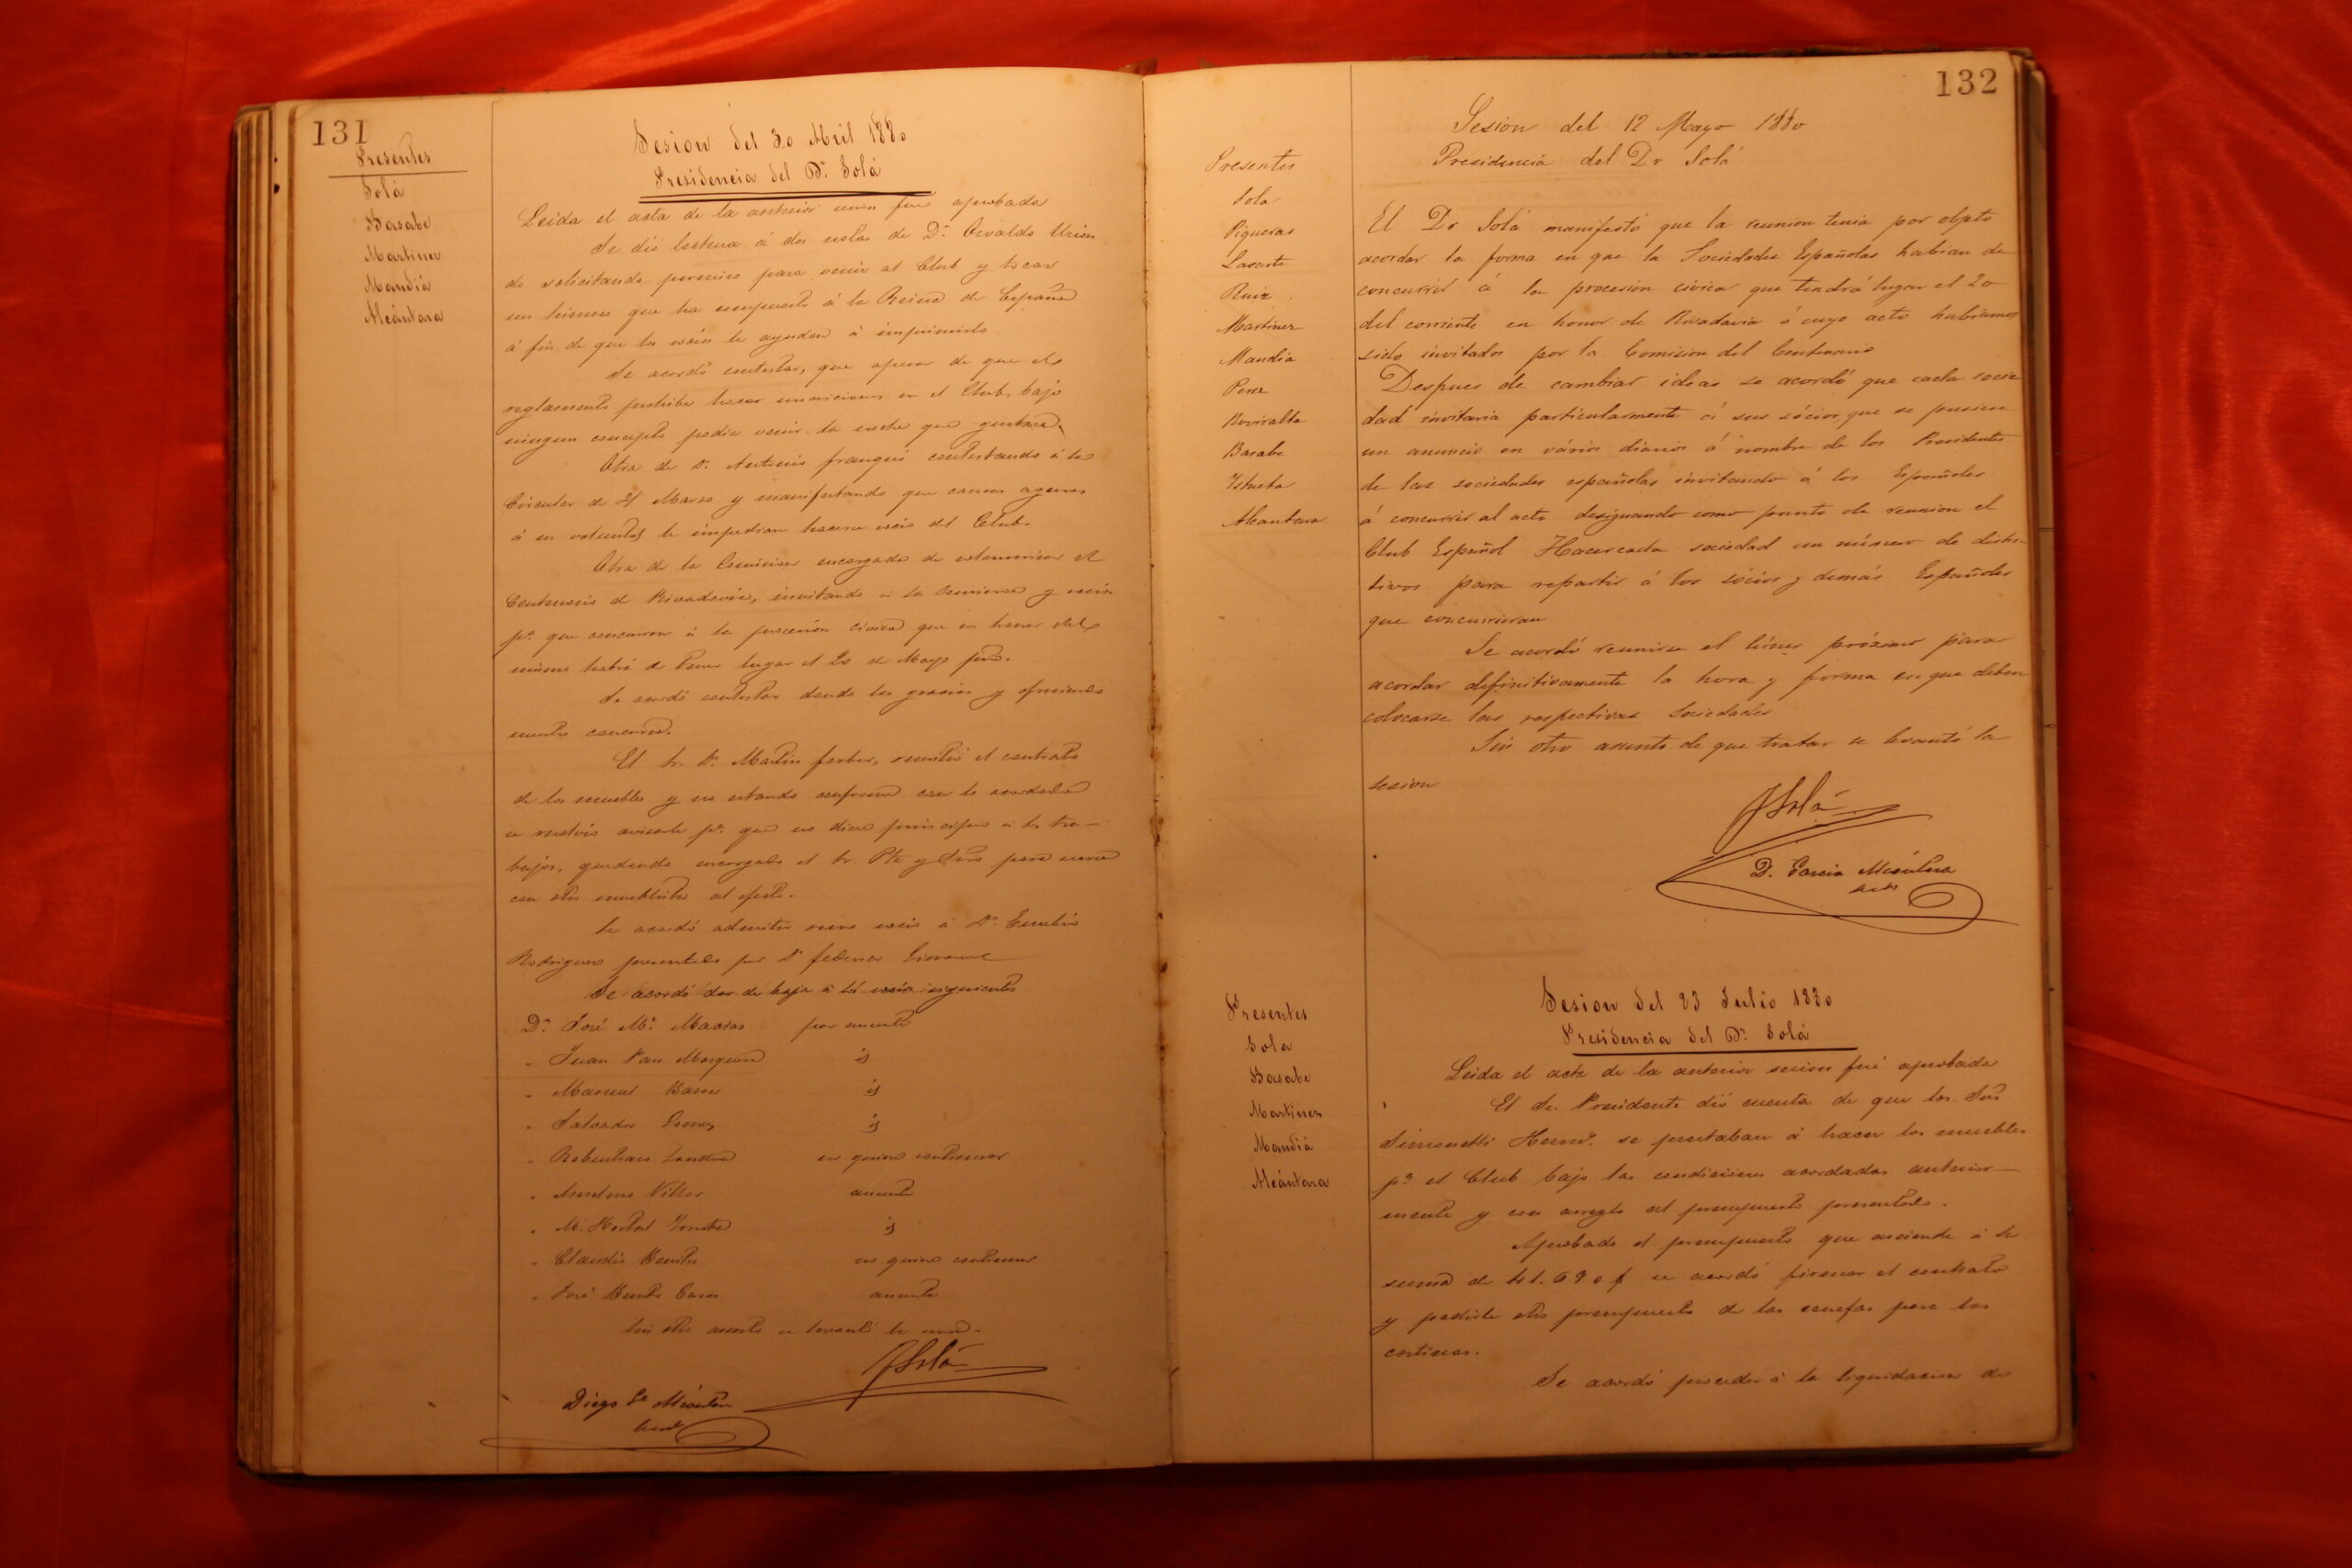 131
Presentes
Solá
Basabe
Martinez
Mandiá
Alcántara
Sesion del 30 Abril 1880
Presidencia del Dr. Solá
Leida el acta de la anterior fué aprobada
Se dió lectura á dos notas de Dn. Osvaldo
do solicitando permiso para venir al Club y tocar
un himno que ha compuesto á la Reina de España
á fin de que los socios le ayuden á imprimirlo
Se acordó contestar, que apesar de que el
reglamento prohibe hacer en el Club, bajo
ningun concepto podia venir la noche que gustara.
Otra de D. Antonio franqui contestando á la
Circular de 21 Marzo y manifestando que causas agenas
á su voluntad le impedian hacerse socio del Club.
Otra de la Comision encargada de solemnizar el
Centenario de Rivadavia, invitando á la y socios
pa. que concurran á la procesión cívica que en honor del
mismo habrá de tener lugar el 20 de Mayo
Se acordó contestar dando las gracias y ofreciendo
nuestro concurso.
El Sr. Dn. Martin ferber, remitió el contrato
de los muebles y no estando conforme con lo acordado
se resolvió pa. que no diera principio á los tra-
bajos, quedando encargado el Sr. Pte y para
con otro mueblista al efecto.
Se acordó admitir como socio á Dn. Eusebio
Rodriguez presentado por Dn federico
Se acordó dar de baja á los socios siguientes
Dn. José Ma. Macias por ausente
" Juan id
" Manuel id
" Salvador id
" no quiere continuar
" ausente
" M. id
" Claudio Benito no quiere continuar
" José Benito ausente
Sin otro asunto se levantó la
Solá
Diego Ga. Alcántara
132
Sesion del 12 Mayo 1880
Presidencia del Dr Solá
Presentes
Sola
Piqueras
Lasarte
Ruiz
Martinez
Mandia
Perez
Roviralta
Basabe
Alcantara
El Dr Solá manifestó que la reunion tenia por objeto
acordar la forma en que la Sociedades Españolas habian de
concurrir á la procesion civica que tendrá lugar el 20
del corriente en honor de Rivadavia á cuyo acto habiamos
sido invitados por la Comision del Centenario
Despues de cambiar ideas se acordó que cada socie
dad invitaria particularmente á sus sócios, que se pusiera
un anuncio en vários diarios á nombre de los Presidentes
de las sociedades españolas invitando á los Españoles
á concurrir al acto designando como punto de reunion el
Club Español Hacer cada sociedad un número de distin
tivos para repartir á los sócios y demás Españoles
que concurrieran
Se acordó reunirse el lúnes próximo para
acordar definitivamente la hora y forma en que deben
colocarse las respectivas Sociedades
Sin otro asunto de que tratar se levantó la
sesion
Solá
D. Garcia Alcántara
Sesion del 23 Julio 1880
Presidencia del Dr. Solá
Presentes
Sola
Basabe
Martinez
Mandiá
Alcántara
Leida el acta de la anterior sesion fué aprobada
El Sr. Presidente dió cuenta de que los Sres
Simonetti Hermo. se prestaban á hacer los muebles
pa. el Club bajo las condiciones acordadas anterior-
mente y con arreglo al presupuesto presentado.
Aprobado el presupuesto que asciende á la
suma de 41.690 se acordó firmar el contrato
y pedirle otro presupuesto de las cenefas para las
cortinas.
Se acordó proceder á la liquidacion de